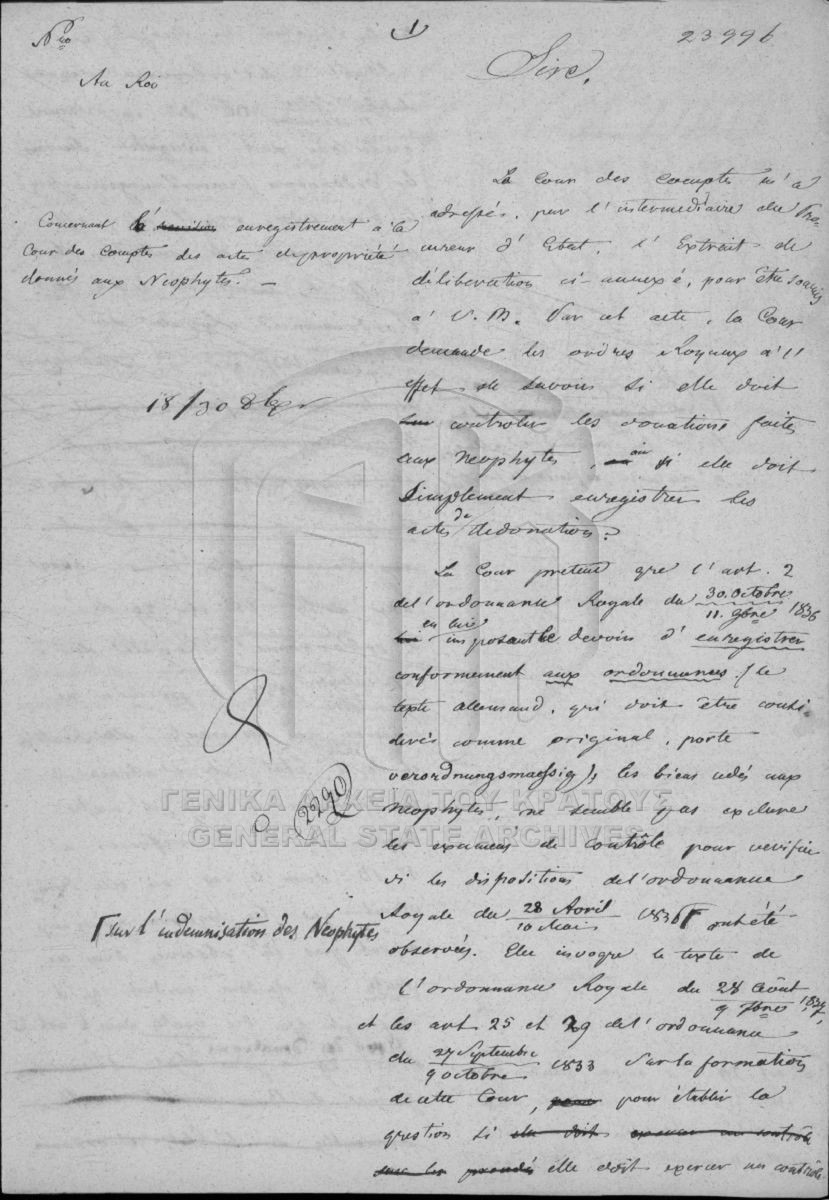 Nro
1
23996
Au Roi
Sire,
Concernant l'enregistrement à la
Cour des Comptes des actes de propriété
donnés aux Neophytes. —
18/30 8br
La Cour des comptes m'a
adressés, par l'intermédiaire du Pro-
cureur d'Etat, l'Extrait de
déliberation ci-annexé, pour être soumis
à V. M. Par cet acte, la Cour
demande les ordres Royaux à l'
effet de savoir si elle doit
controler les donations faites
aux Neophytes, ou si elle doit
simplement enregistrer les
actes de donation?
La Cour pretend que l'art. 2
de l'ordonnance Royale du 30. Octobre / 11. 9bre 1836
en lui imposant le devoir d'enregistrer
conformement aux ordonnances (le
texte allemand, qui doit être consi
deré comme original, porte
verordnungsmaessig), les biens cedés aux
Neophytes, ne semble pas exclure
les examens de contrôle pour verifier
si les dispositions de l'ordonnance
Royale du 28 Avril / 10 Mai 1836 Γ ont été
Γ sur l'indemnisation des Neophytes
observées. Elle invoque le texte de
l'ordonnance Royale du 28 Août / 9 7bre
et les art 25 et 29 de l'ordonnance
du 27 Septembre / 9 octobre 1833 sur la formation
de cette Cour, pour établir la
question si elle doit exercer un contrôle
2290
ΓΕΝΙΚΑ ΑΡΧΕΙΑ ΤΟΥ ΚΡΑΤΟΥΣ
GENERAL STATE ARCHIVES